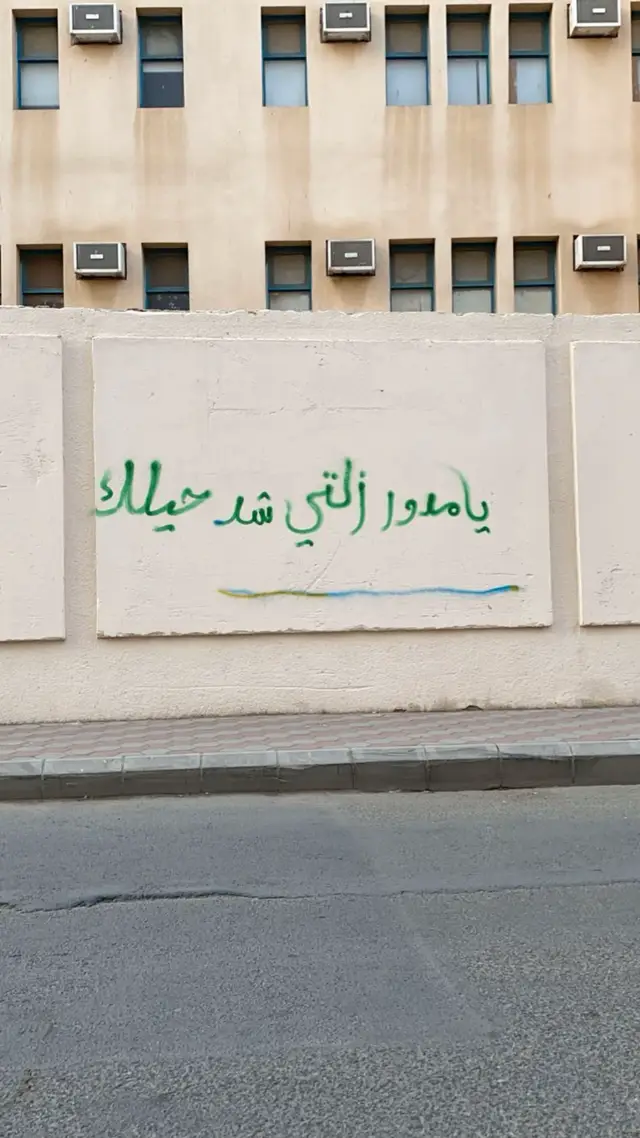 يا مدور زلتي شد حيلك